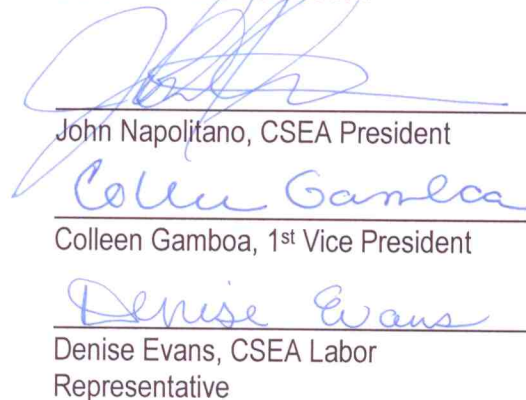 John Napolitano, CSEA President
Colleen Gamboa
Colleen Gamboa, 1st Vice President
Denise Evans
Denise Evans, CSEA Labor
Representative